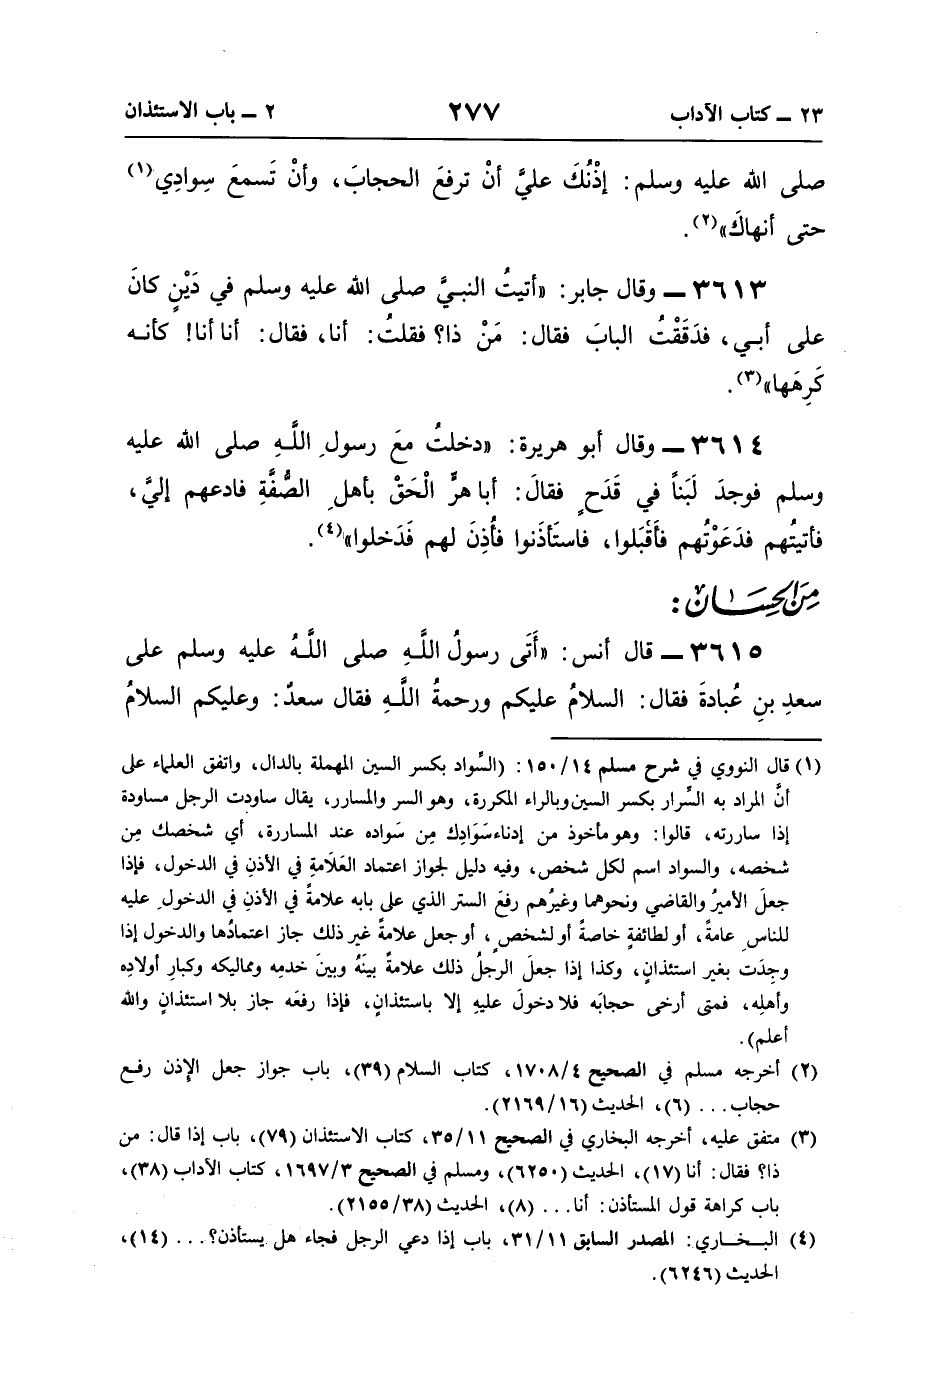 ٢٣ ـ كتاب الآداب ٢٧٧ ٢ ـ باب الاستئذان
صلى الله عليه وسلم: إذْنُكَ عليَّ أنْ ترفعَ الحجابَ، وأنْ تَسمعَ سِوادِي(١)
حتى أنهاكَ»(٢).
٣٦١٣ ـ وقال جابر: «أتيتُ النبيَّ صلى الله عليه وسلم في دَيْنٍ كانَ
على أبـي، فدَقَقْتُ البابَ فقال: مَنْ ذا؟ فقلتُ: أنا، فقال: أنا أنا! كأنـه
كَرِهَها»(٣).
٣٦١٤ ـ وقال أبو هريرة: «دخلتُ معَ رسولِ اللَّـهِ صلى الله عليه
وسلم فوجدَ لَبَناً في قَدَحٍ فقالَ: أبا هرٍّ الْحَقْ بأهلِ الصُّفَّةِ فادعهم إليَّ،
فأتيتُهم فدَعَوْتُهم فأقبَلوا، فاستَأذَنوا فأُذِنَ لهم فَدَخلوا»(٤).
مِنَ الحِسَـان:
٣٦١٥ ـ قال أنس: «أَتَى رسولُ اللَّـهِ صلى اللَّـهُ عليه وسلم على
سعدِ بنِ عُبادةَ فقال: السلامُ عليكم ورحمةُ اللَّـهِ فقال سعدٌ: وعليكم السلامُ
(١) قال النووي في شرح مسلم ١٤/١٥٠: (السِّواد بكسر السين المهملة بالدال، واتفق العلماء على
أنَّ المراد به السِّرار بكسر السين وبالراء المكررة، وهو السر والمسارر، يقال ساودت الرجل مساودة
إذا ساررته، قالوا: وهو مأخوذ من إدناء سَوَادِك مِن سَواده عند المساررة، أي شخصك مِن
شخصه، والسواد اسم لكل شخص، وفيه دليل لجواز اعتماد العَلَامةِ في الأذنِ في الدخول، فإذا
جعلَ الأميرُ والقاضي ونحوهما وغيرُهم رفعَ الستر الذي على بابه علامةً في الأذنِ في الدخولِ عليه
للناسِ عامةً، أو لطائفةٍ خاصةً أو لشخصٍ، أو جعل علامةً غير ذلك جاز اعتمادُها والدخول إذا
وجِدَت بغير استئذانٍ، وكذا إذا جعلَ الرجلُ ذلك علامةً بينَهُ وبينَ خدمِه ومماليكه وكبارِ أولادِه
وأهلِه، فمتى أرخى حجابَه فلا دخولَ عليهِ إلا باستئذانٍ، فإذا رفعَه جاز بلا استئذانٍ والله
أعلم).
(٢) أخرجه مسلم في الصحيح ٤/١٧٠٨، كتاب السلام (٣٩)، باب جواز جعل الإذن رفـع
حجاب... (٦)، الحديث (١٦/٢١٦٩).
(٣) متفق عليه، أخرجه البخاري في الصحيح ١١/٣٥، كتاب الاستئذان (٧٩)، باب إذا قال: من
ذا؟ فقال: أنا (١٧)، الحديث (٦٢٥٠)، ومسلم في الصحيح ٣/١٦٩٧، كتاب الآداب (٣٨)،
باب كراهة قول المستأذن: أنا... (٨)، الحديث (٣٨/٢١٥٥).
(٤) البـخـاري: المصدر السابق ١١/٣١، باب إذا دعي الرجل فجاء هل يستأذن؟... (١٤)،
الحديث (٦٢٤٦).